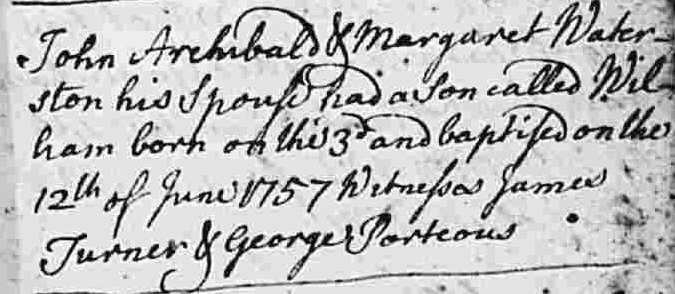 John Archibald & Margaret Water-
ston his Spouse had a Son called Wil-
liam born on the 3d and baptised on the
12th of June 1757 Witnesses James
Turner & George Porteous